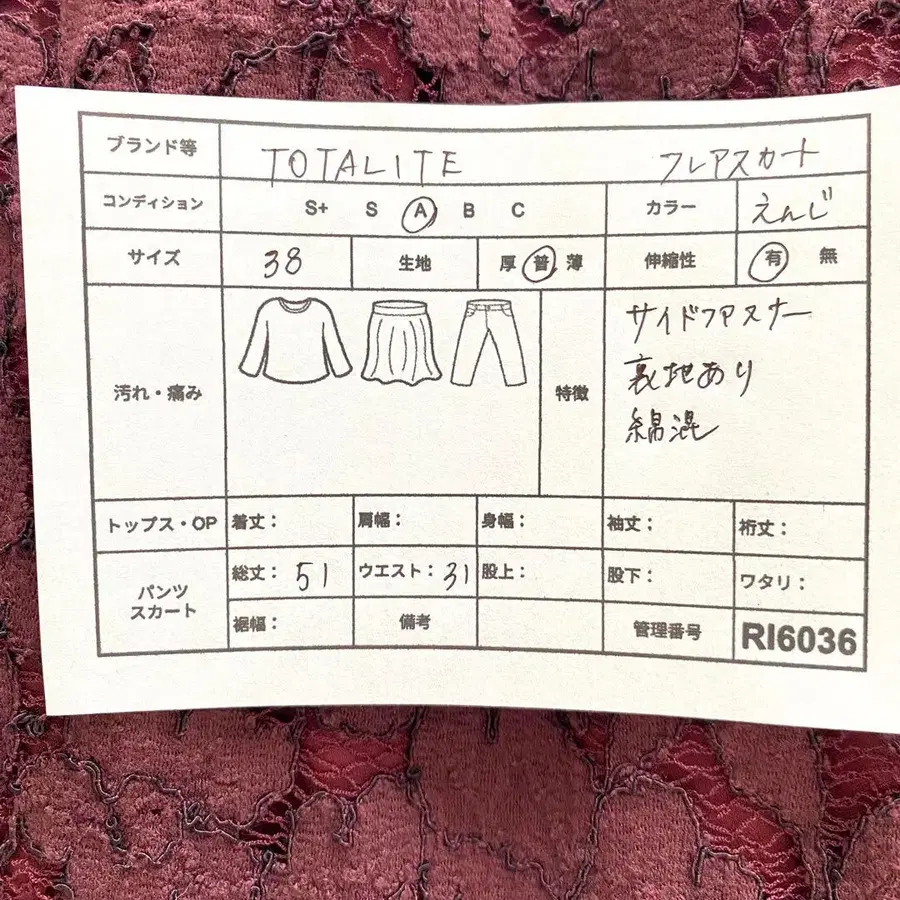 ブランド等 TOTALITE フレアスカート
コンディション S+ S A B C カラー えんじ
サイズ 38 生地 厚 普 薄 伸縮性 有 無
汚れ・痛み 特徴 サイドファスナー
裏地あり
綿混
トップス・OP 着丈: 肩幅: 身幅: 袖丈: 裄丈:
パンツ
スカート
総丈: 51 ウエスト: 31 股上: 股下: ワタリ:
裾幅: 備考 管理番号 RI6036